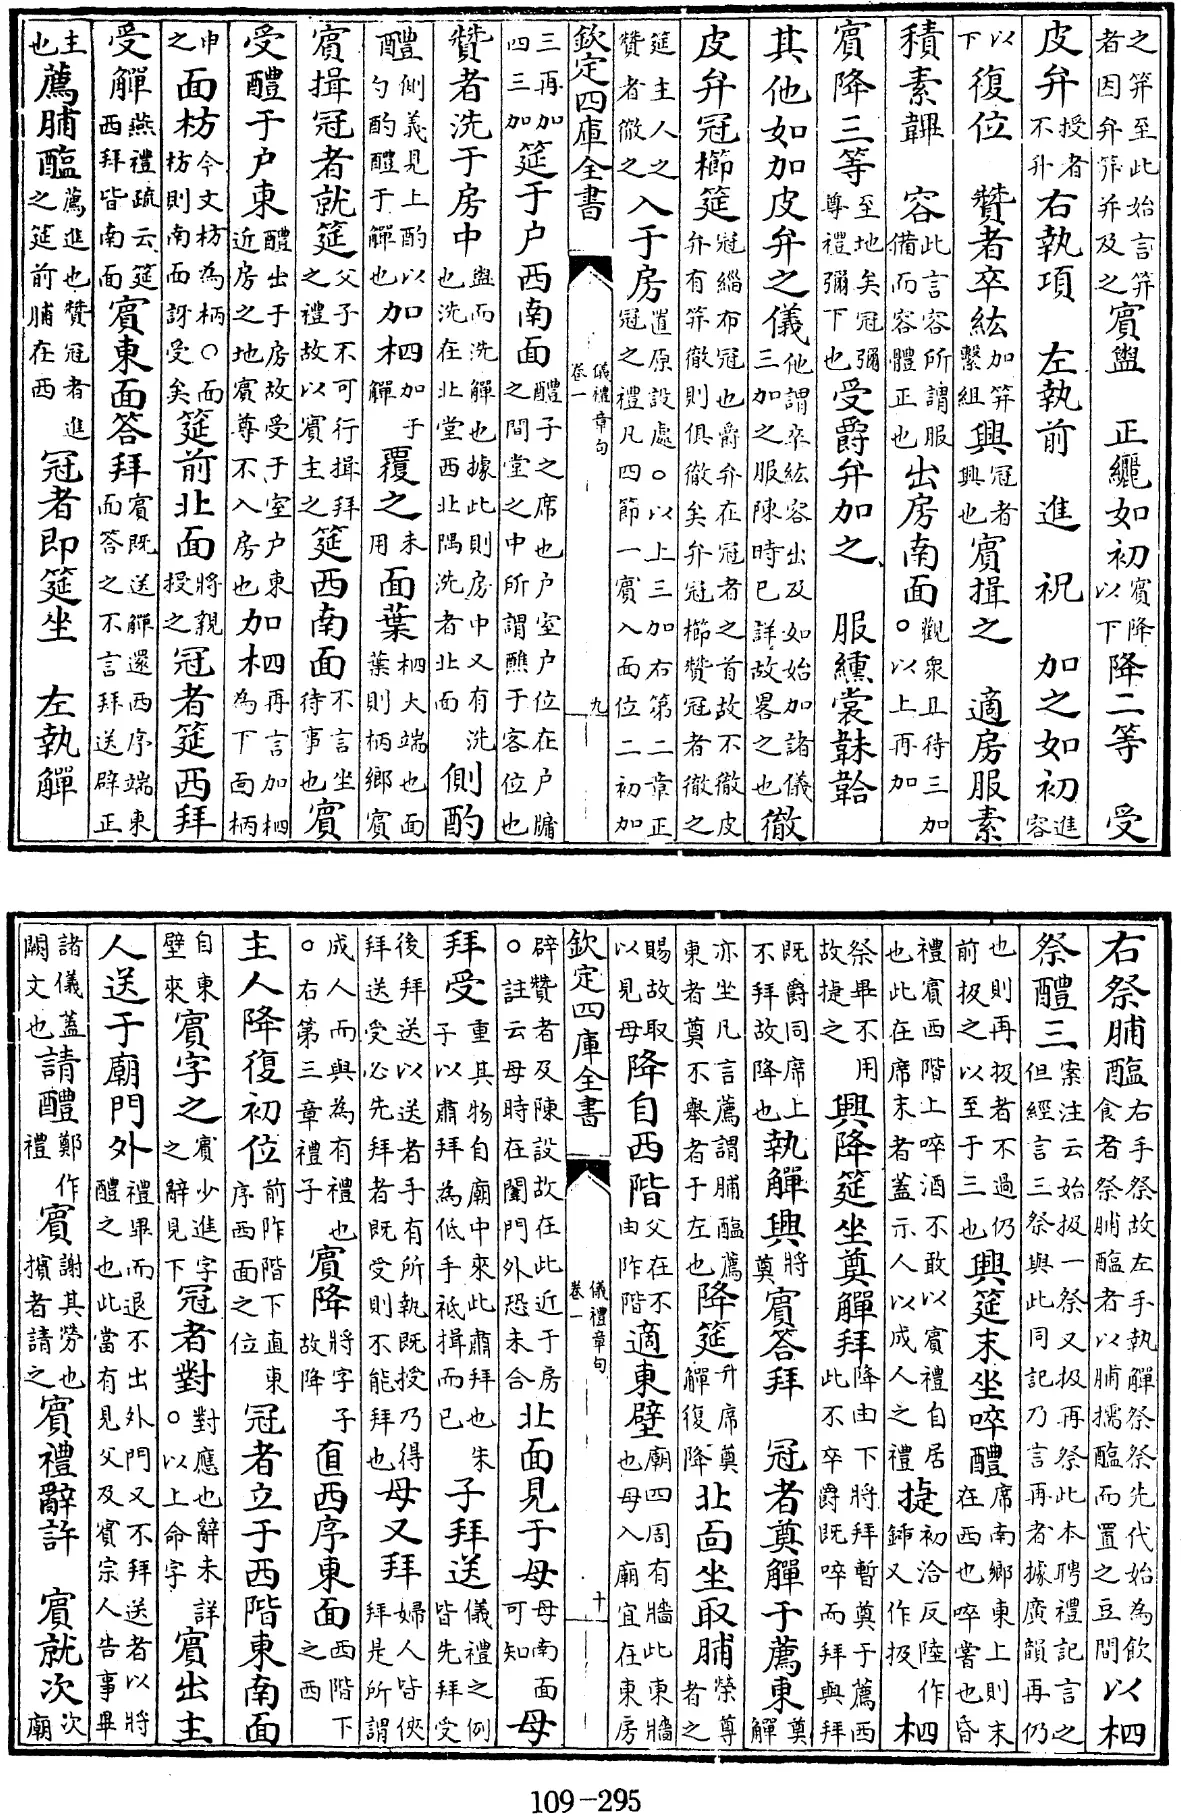 之笄至此始言笄者因弁笄并及之賓盥 正纚如初賓降以下降二等 受
皮弁授者不升右執項 左執前 進 祝 加之如初進容
以下復位 贊者卒紘加笄繫組興冠者興也賓揖之 適房服素
積素韠 容此言容所謂服備而容體正也出房南面觀衆且待三加○以上再加
賓降三等至地矣冠彌尊禮彌下也受爵弁加之 服纁裳韎韐
其他如加皮弁之儀他謂卒紘容出及如始加諸儀三加之服陳時已詳故畧之也徹
皮弁冠櫛筵冠緇布冠也爵弁在冠者之首故不徹皮弁有笄徹則俱徹矣弁冠櫛贊冠者徹之
筵主人之贊者徹之入于房置原設處○以上三加右第二章正冠之禮凡四節一賓入面位二初加
欽定四庫全書 儀禮章句 卷一 九
三再加四三加筵于户西南面醴子之席也户室户位在户牖之間堂之中所謂醮于客位也
贊者洗于房中盥而洗觶也據此則房中又有洗也洗在北堂西北隅洗者北面側酌
醴側義見上酌以勺酌醴于觶也加柶加于觶覆之未用面葉柶大端也面葉則柄鄉賓
賓揖冠者就筵父子不可行揖拜之禮故以賓主之筵西南面不言坐待事也賓
受醴于户東醴出于房故受于室户東近房之地賓尊不入房也加柶再言加柶為下面柄
申之面枋今文枋為柄○而枋則南面訝受矣筵前北面將親授之冠者筵西拜
受觶燕禮疏云筵西拜皆南面賓東面答拜賓既送觶還西序端東而答之不言拜送辟正
主也薦脯醢薦進也贊冠者進之筵前脯在西冠者即筵坐 左執觶
右祭脯醢右手祭故左手執觶祭祭先代始為飲食者祭脯醢者以脯擩醢而置之豆間以柶
祭醴三案注云始扱一祭又扱再祭此本聘禮記言之但經言三祭與此同記乃言再者據廣韻再仍
也則再扱者不過仍前扱之以至于三也興筵末坐啐醴席南鄉東上則末在西也啐嘗也昏
禮賓西階上啐酒不敢以賓禮自居也此在席末者蓋示人以成人之禮捷初洽反陸作鍤又作扱柶
祭畢不用故捷之興降筵坐奠觶拜降由下將拜暫奠于薦西此不卒爵既啐而拜與拜
既爵同席上不拜故降也執觶興將奠賓答拜 冠者奠觶于薦東奠觶
亦坐凡言薦謂脯醢薦東者奠不舉者于左也降筵升席奠觶復降北面坐取脯榮尊者之
賜故取以見母降自西階父在不由阼階適東壁廟四周有牆此東牆也母入廟宜在東房
欽定四庫全書 儀禮章句 卷一 十
辟贊者及陳設故在此近于房○註云母時在闈門外恐未合北面見于母母南面可知母
拜受重其物自廟中來此肅拜也朱子以肅拜為低手袛揖而已子拜送儀禮之例皆先拜受
後拜送以送者手有所執既授乃得拜送受必先拜者既受則不能拜也母又拜婦人皆俠拜是所謂
成人而與為有禮也○右第三章禮子賓降將字子故降直西序東面西階下之西
主人降復初位前阼階下直東序西面之位冠者立于西階東南面
自東壁來賓字之賓少進字之辭見下冠者對對應也辭未詳○以上命字賓出主
人送于廟門外禮畢而退不出外門又不拜送者以將醴之也此當有見父及賓宗人告事畢
諸儀蓋闕文也請醴鄭作禮賓謝其勞也擯者請之賓禮辭許 賓就次次廟
109-295